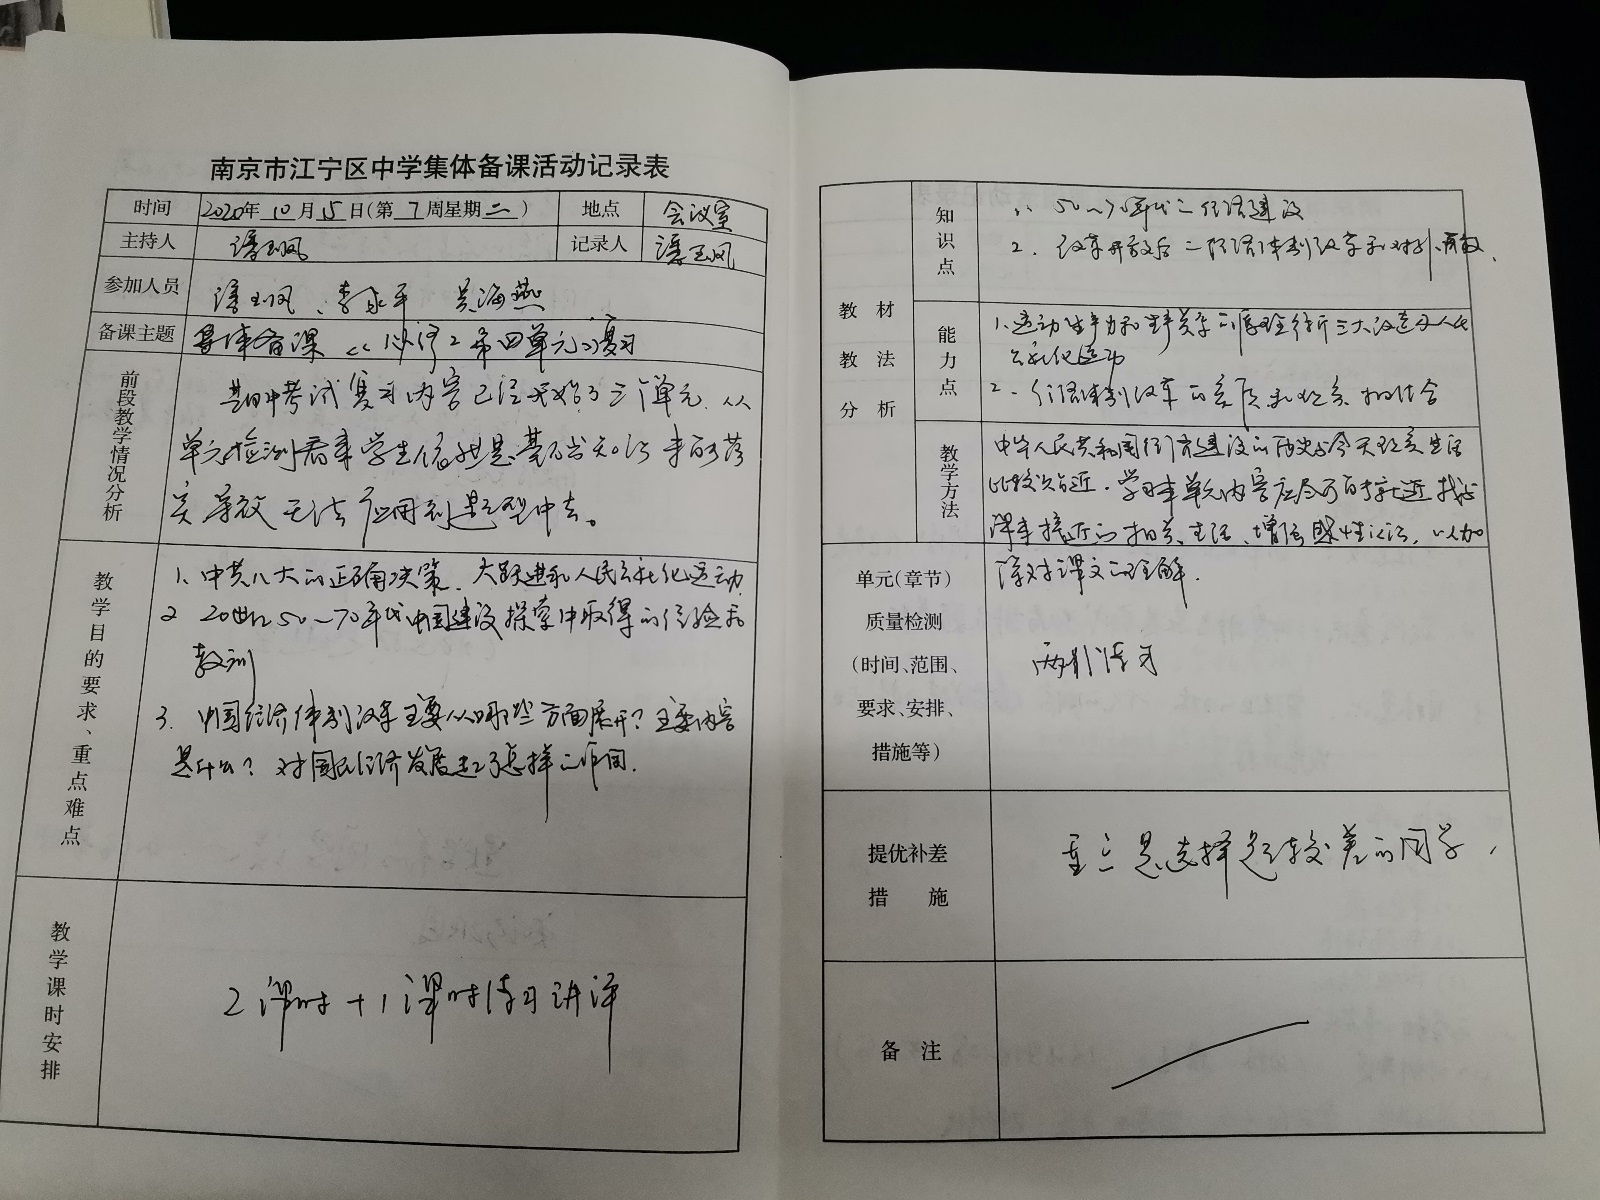 南京市江宁区中学集体备课活动记录表
时间 2020年 10 月 15 日(第 7 周星期 二 ) 地点 会议室
主持人 谭玉凤 记录人 谭玉凤
参加人员 谭玉凤、李永平 吴海燕
备课主题 集体备课 《必修2第四单元》复习
前段教学情况分析
期中考试复习内容已经开始了三个单元.从
单元检测看来学生依然是基础知识未能落
实 导致 无法应用到题型中去。
教学目的要求、重点难点
1、中共八大的正确决策、大跃进和人民公社化运动
2 20世纪50~70年代中国建设探索中取得的经验和
教训
3. 中国经济体制改革主要从哪些方面展开?主要内容
是什么?对国民经济发展起了怎样的作用.
教学课时安排
2课时+1课时练习讲评
教材
教法
分析
知识点
1. 50~70年代的经济建设
2. 改革开放后的经济体制改革和对外开放.
能力点
1.运动生产力和生产关系的原理分析三大改造及人民
公社化运动
2、经济体制改革的实质和相结合
教学方法
中华人民共和国经济建设的历史与今天现实生活
比较贴近.学习本单元内容应尽可能就近找
课本接近的相关生活、增强感性认识,以加
深对课文的理解.
单元(章节)
质量检测
(时间、范围、
要求、安排、
措施等)
两张练习
提优补差
措 施
重点是选择题较差的同学,
备 注